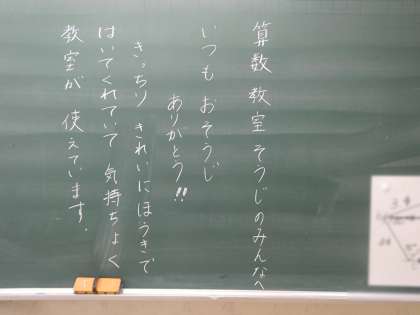 算数教室そうじのみんなへ
いつもおそうじ
ありがとう!!
きっちりきれいにほうきで
はいてくれていて気持ちよく
教室が使えています.